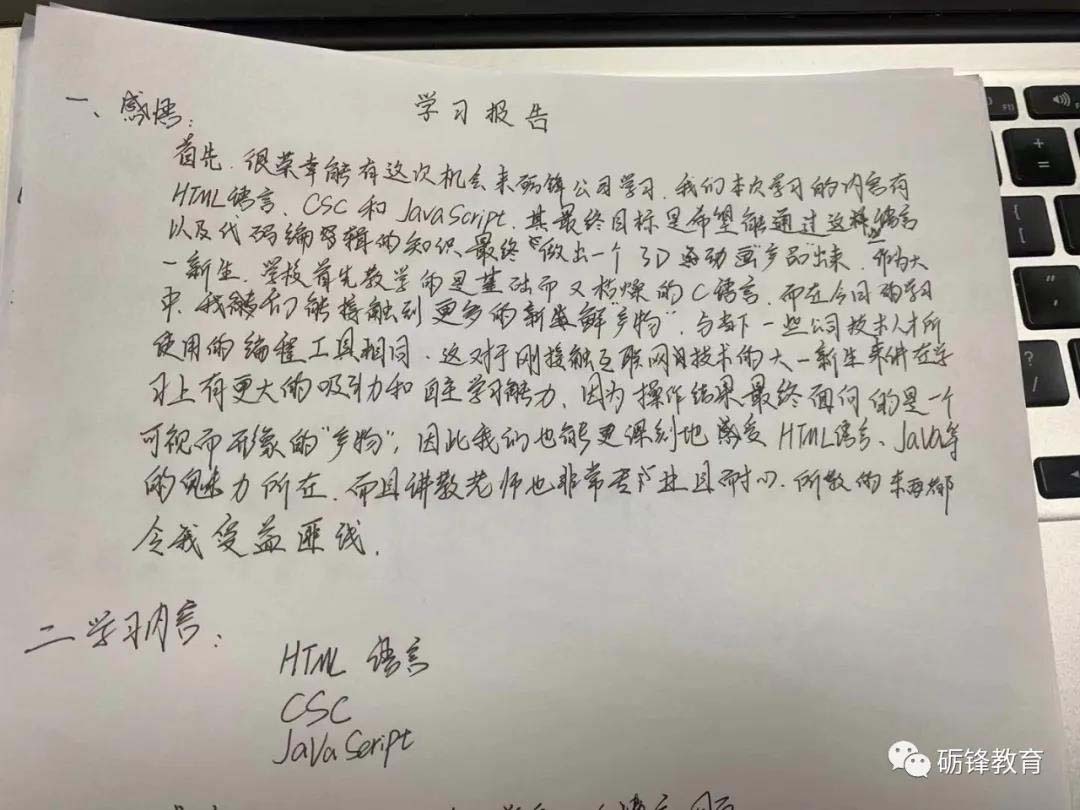 学习报告
一、感悟:
首先,很荣幸能有这次机会来砺锋公司学习.我们本次学习的内容有
HTML语言、CSC和JavaScript.其最终目标是希望能通过这种语言
以及代码编写逻辑的知识最终做出一个3D运动画"产品"出来.作为大
一新生.学校首先教学的是基础而又枯燥的C语言.而在今日的学习
中.我们能接触到更多的新鲜产物",与当下一些公司技术人才所
使用的编程工具相同.这对于刚接触互联网技术的大一新生来讲在学
习上有更大的吸引力和自主学习能力、因为操作结果最终面向的是一个
可视而形象的"产物",因此我们也能更深刻地感受HTML语言、Java等
的魅力所在.而且讲教老师也非常专业且耐心.所教的东西都
令我受益匪浅.
二学习内容:
HTML语言
CSC
JavaScript
砺锋教育